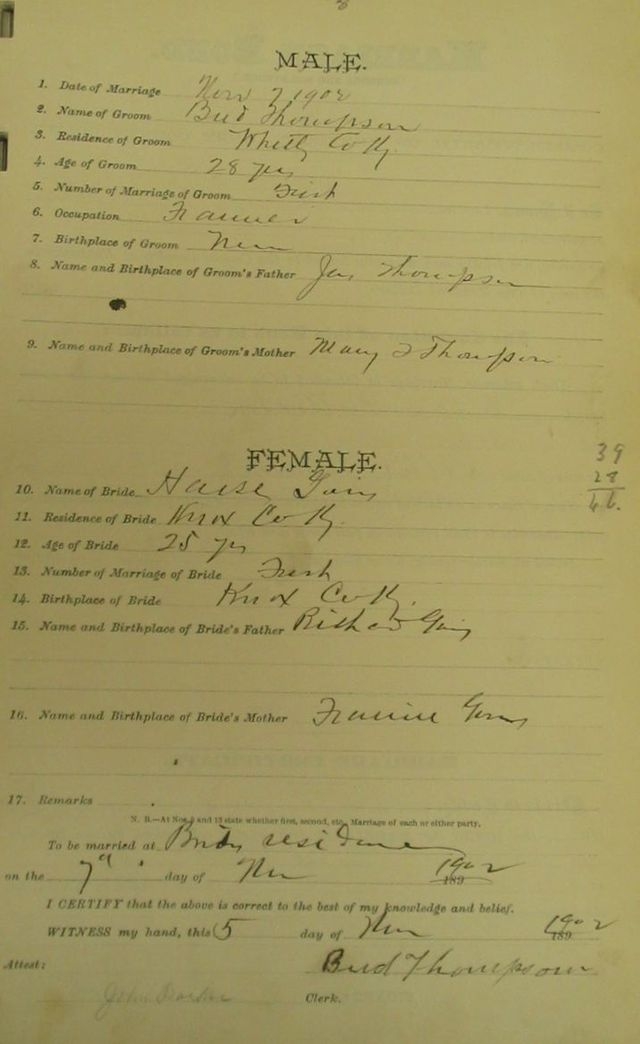 MALE.
1. Date of Marriage Nov 7 1902
2. Name of Groom Bud Thompson
3. Residence of Groom Whitly Co Ky.
4. Age of Groom 28 yrs
5. Number of Marriage of Groom First
6. Occupation Farmer
7. Birthplace of Groom
8. Name and Birthplace of Groom's Father Jas Thompson
9. Name and Birthplace of Groom's Mother Mary Thompson
FEMALE.
39
28
46.
10. Name of Bride
11. Residence of Bride Knox Co Ky.
12. Age of Bride 25 yrs
13. Number of Marriage of Bride First
14. Birthplace of Bride Knox Co Ky.
15. Name and Birthplace of Bride's Father
16. Name and Birthplace of Bride's Mother
17. Remarks
N. B.—At Nos. 5 and 13 state whether first, second, etc., Marriage of each or either party.
To be married at Brides residence
on the 7" day of Nov 189 1902
I CERTIFY that the above is correct to the best of my knowledge and belief.
WITNESS my hand, this 5 day of Nov 189 1902
Bud Thompson
Attest:
John Clerk.